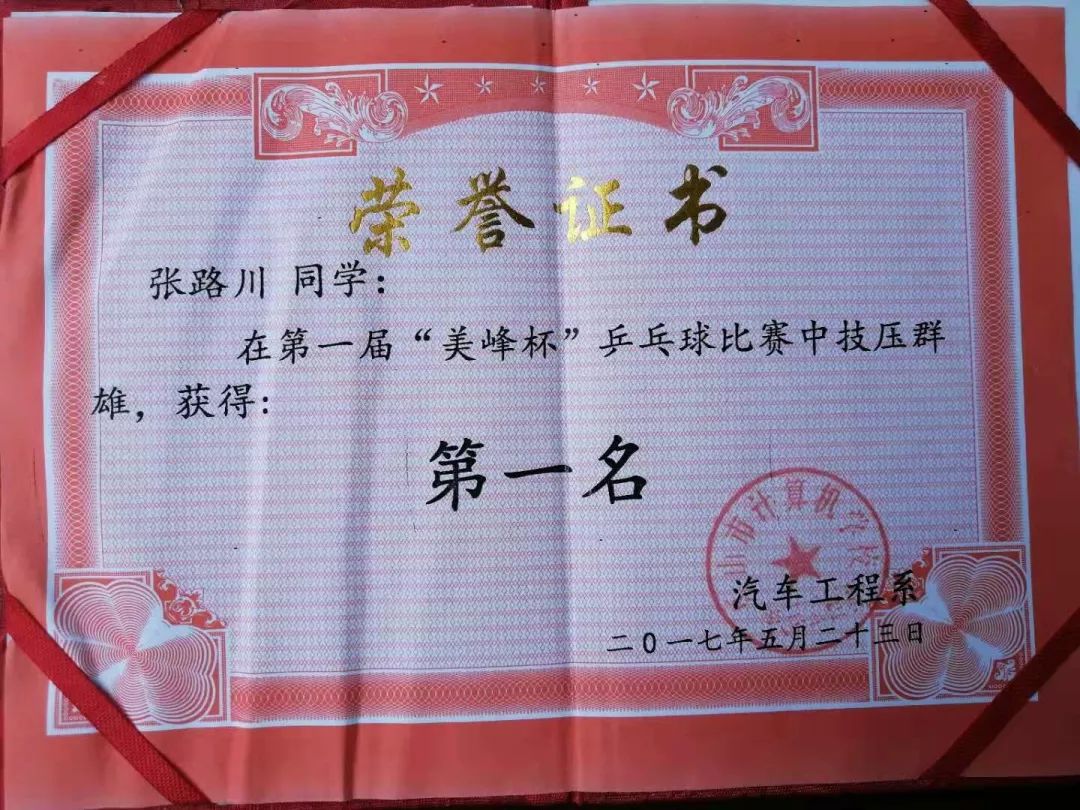 荣誉证书
张路川 同学：
在第一届“美峰杯”乒乓球比赛中技压群
雄，获得：
第一名
山市计算机学院
汽车工程系
二0一七年五月二十三日